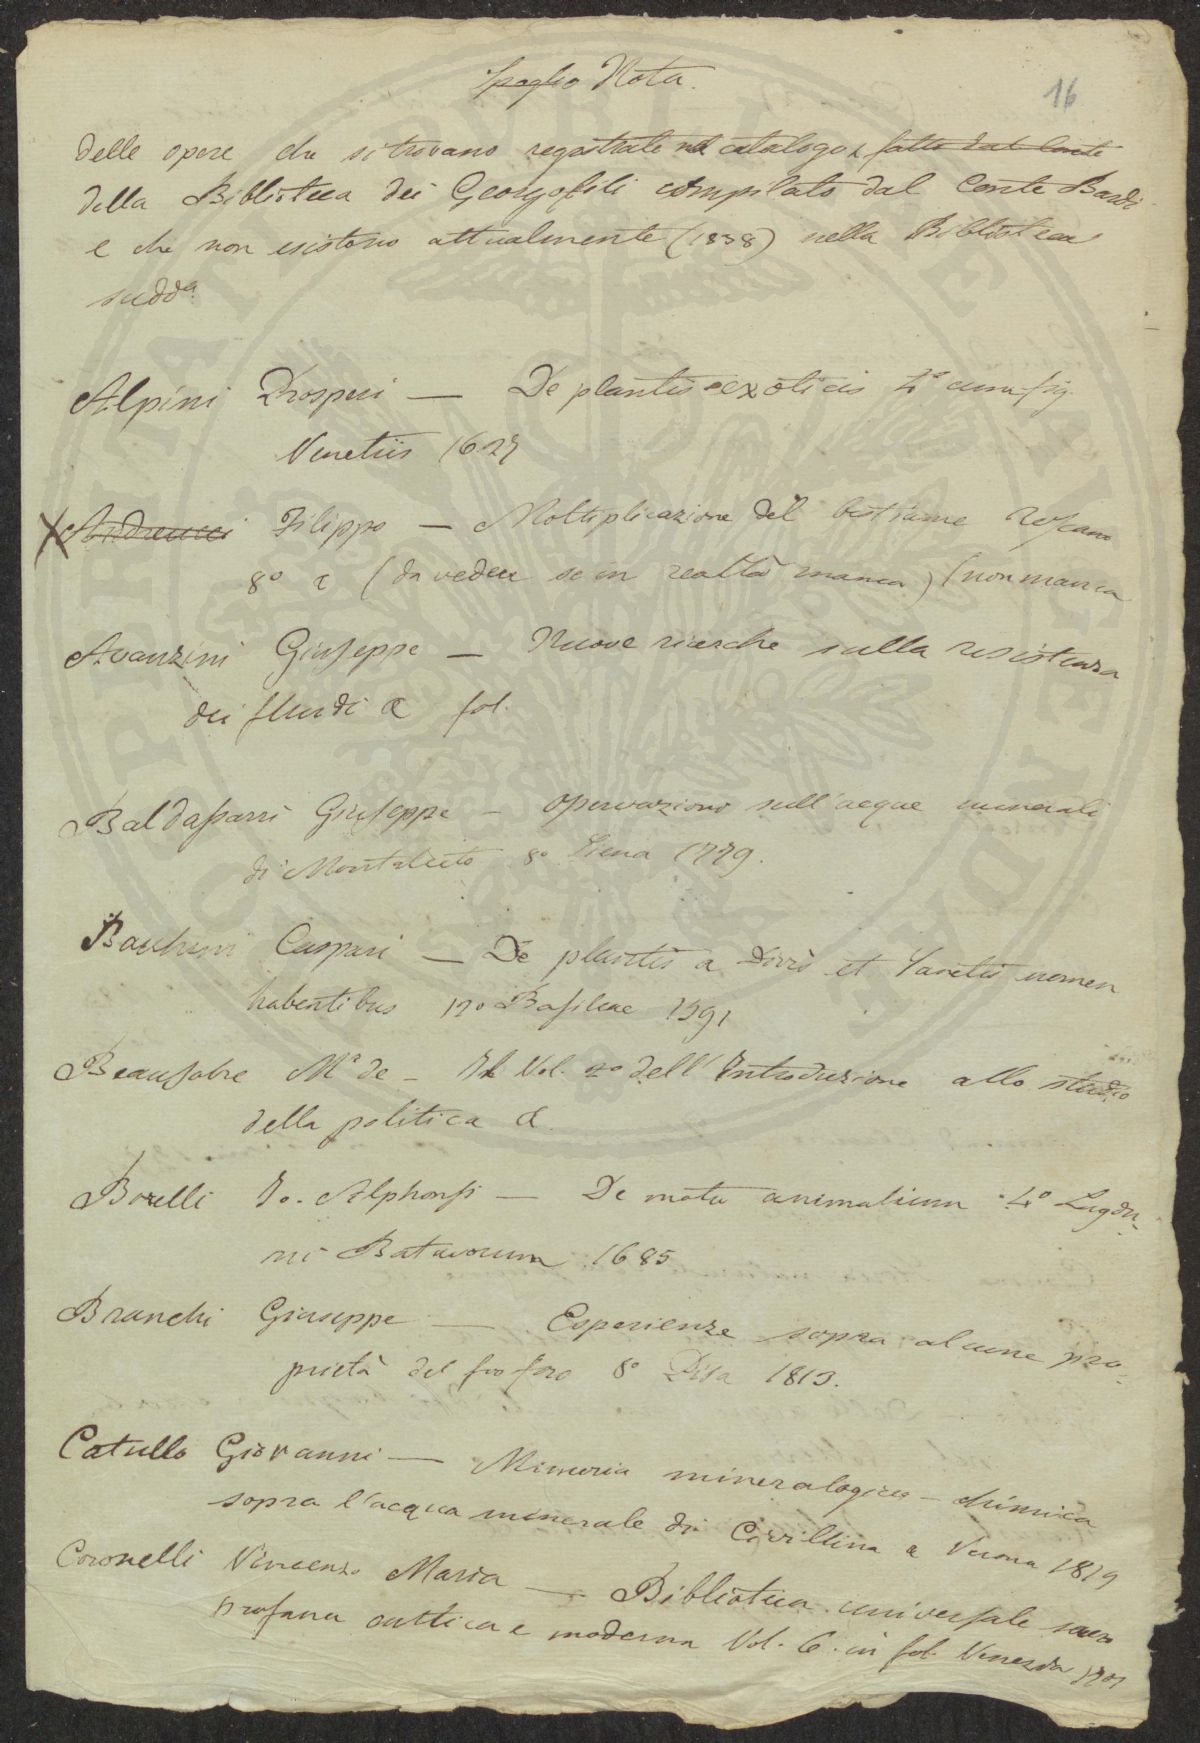 spoglio Nota.
16
delle opere che si trovano registrate nel catalogo fatto dal Conte
della Biblioteca dei Georgofili compilato dal Conte Bardi
e che non esistono attualmente (1838) nella Biblioteca
sudda.
Alpini Prosperi — De plantis exoticis 4° cum fig.
Venetiis 1627
X Andreucci Filippo — Moltiplicazione del bestiame toscano
8° (da vedere se in realtà manca) (non manca
Avanzini Giuseppe — Nuove ricerche sulla resistenza
dei fluidi & fol.
Baldassarri Giuseppe — Osservazioni sull'acque minerali
di Montalceto 8° Siena 1779.
Bauhini Caspari — De plantis a Divis et Sanctis nomen
habentibus 12° Basileae 1591
Beausobre Mr de — Il Vol. 2° dell'Introduzione allo studio
della politica &
Borelli Jo. Alphonsi — De motu animalium 4° Lugdu-
ni Batavorum 1685
Branchi Giuseppe — Esperienze sopra alcune pro-
prietà del fosforo 8° Pisa 1813.
Catullo Giovanni — Memoria mineralogico-chimica
sopra l'acqua minerale di Civillina & Verona 1819
Coronelli Vincenzo Maria — Biblioteca universale sacro
profana antica e moderna Vol. 6. in fol. Venezia 1701
COPERTINA PVRIORE AVENIDAE